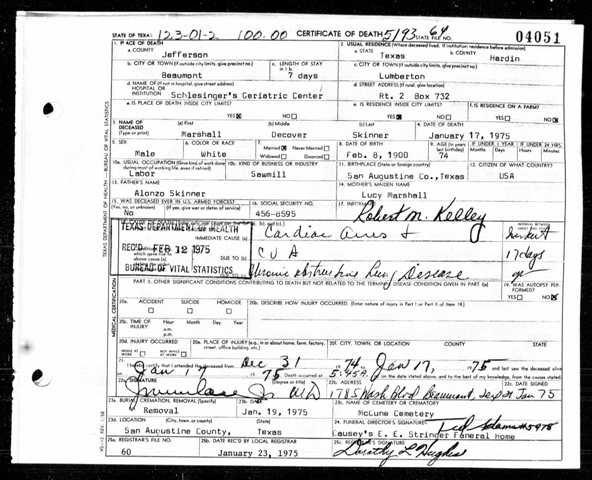 STATE OF TEXAS 123-01-2 100.00 CERTIFICATE OF DEATH 5193 64 STATE FILE NO. 04051
1. PLACE OF DEATH
a. COUNTY Jefferson
2. USUAL RESIDENCE (Where deceased lived. If institution: residence before admission)
a. STATE Texas b. COUNTY Hardin
b. CITY OR TOWN (If outside city limits, give precinct no.) Beaumont
c. LENGTH OF STAY 7 days
c. CITY OR TOWN (If outside city limits, give precinct no.) Lumberton
d. NAME OF (If not in hospital, give street address) HOSPITAL OR INSTITUTION Schlesinger's Geriatric Center
d. STREET ADDRESS (If rural, give location) Rt. 2 Box 732
e. IS PLACE OF DEATH INSIDE CITY LIMITS? YES NO
e. IS RESIDENCE INSIDE CITY LIMITS? YES NO
f. IS RESIDENCE ON A FARM? YES NO
3. NAME OF DECEASED (Type or print) (a) First Marshall (b) Middle Decover (c) Last Skinner
4. DATE OF DEATH January 17, 1975
5. SEX Male
6. COLOR OR RACE White
7. Married Never Married Widowed Divorced
8. DATE OF BIRTH Feb. 8, 1900
9. AGE 74
IF UNDER 1 YEAR Months Days IF UNDER 24 HRS. Hours Min.
10a. USUAL OCCUPATION (Give kind of work done during most of working life, even if retired) Labor
10b. KIND OF BUSINESS OR INDUSTRY Sawmill
11. BIRTHPLACE (State or foreign country) San Augustine Co., Texas
12. CITIZEN OF WHAT COUNTRY? USA
13. FATHER'S NAME Alonzo Skinner
14. MOTHER'S MAIDEN NAME Lucy Marshall
15. WAS DECEASED EVER IN U.S. ARMED FORCES? (Yes, no, or unknown) (If yes, give war or dates of service) No
16. SOCIAL SECURITY NO. 456-8595
17. INFORMANT Robert M. Kelley
TEXAS DEPARTMENT OF HEALTH
REC'D FEB 12 1975
BUREAU OF VITAL STATISTICS
IMMEDIATE CAUSE (a) Cardiac
DUE TO CVA 17 days
Disease
PART II. OTHER SIGNIFICANT CONDITIONS CONTRIBUTING TO DEATH BUT NOT RELATED TO THE TERMINAL DISEASE CONDITION GIVEN IN PART I(a)
19. WAS AUTOPSY PERFORMED? YES NO
20a. ACCIDENT SUICIDE HOMICIDE
20b. DESCRIBE HOW INJURY OCCURRED. (Enter nature of injury in Part I or Part II of item 18.)
20c. TIME OF INJURY Hour Month Day Year a.m. p.m.
20d. INJURY OCCURRED WHILE AT WORK NOT WHILE AT WORK
20e. PLACE OF INJURY (e.g., in or about home, farm, factory, street, office building, etc.)
20f. CITY, TOWN, OR LOCATION COUNTY STATE
21. I hereby certify that I attended the deceased from Dec 31 74 Jan 17, 75 and last saw the deceased alive
75 Death occurred at on the date stated above; and to the best of my knowledge, from the causes stated.
22a. SIGNATURE (Degree or title)
22b. ADDRESS Beaumont
22c. DATE SIGNED Jan 75
23a. BURIAL, CREMATION, REMOVAL (Specify) Removal
23b. DATE Jan. 19, 1975
23c. NAME OF CEMETERY OR CREMATORY McCune Cemetery
23d. LOCATION (City, town, or county) (State) San Augustine County, Texas
24. FUNERAL DIRECTOR'S SIGNATURE Causey's E. E. Stringer Funeral Home
25a. REGISTRAR'S FILE NO. 60
25b. DATE REC'D BY LOCAL REGISTRAR January 23, 1975
25c. REGISTRAR'S SIGNATURE Dorothy L. Hughes
TEXAS DEPARTMENT OF HEALTH - BUREAU OF VITAL STATISTICS
MEDICAL CERTIFICATION